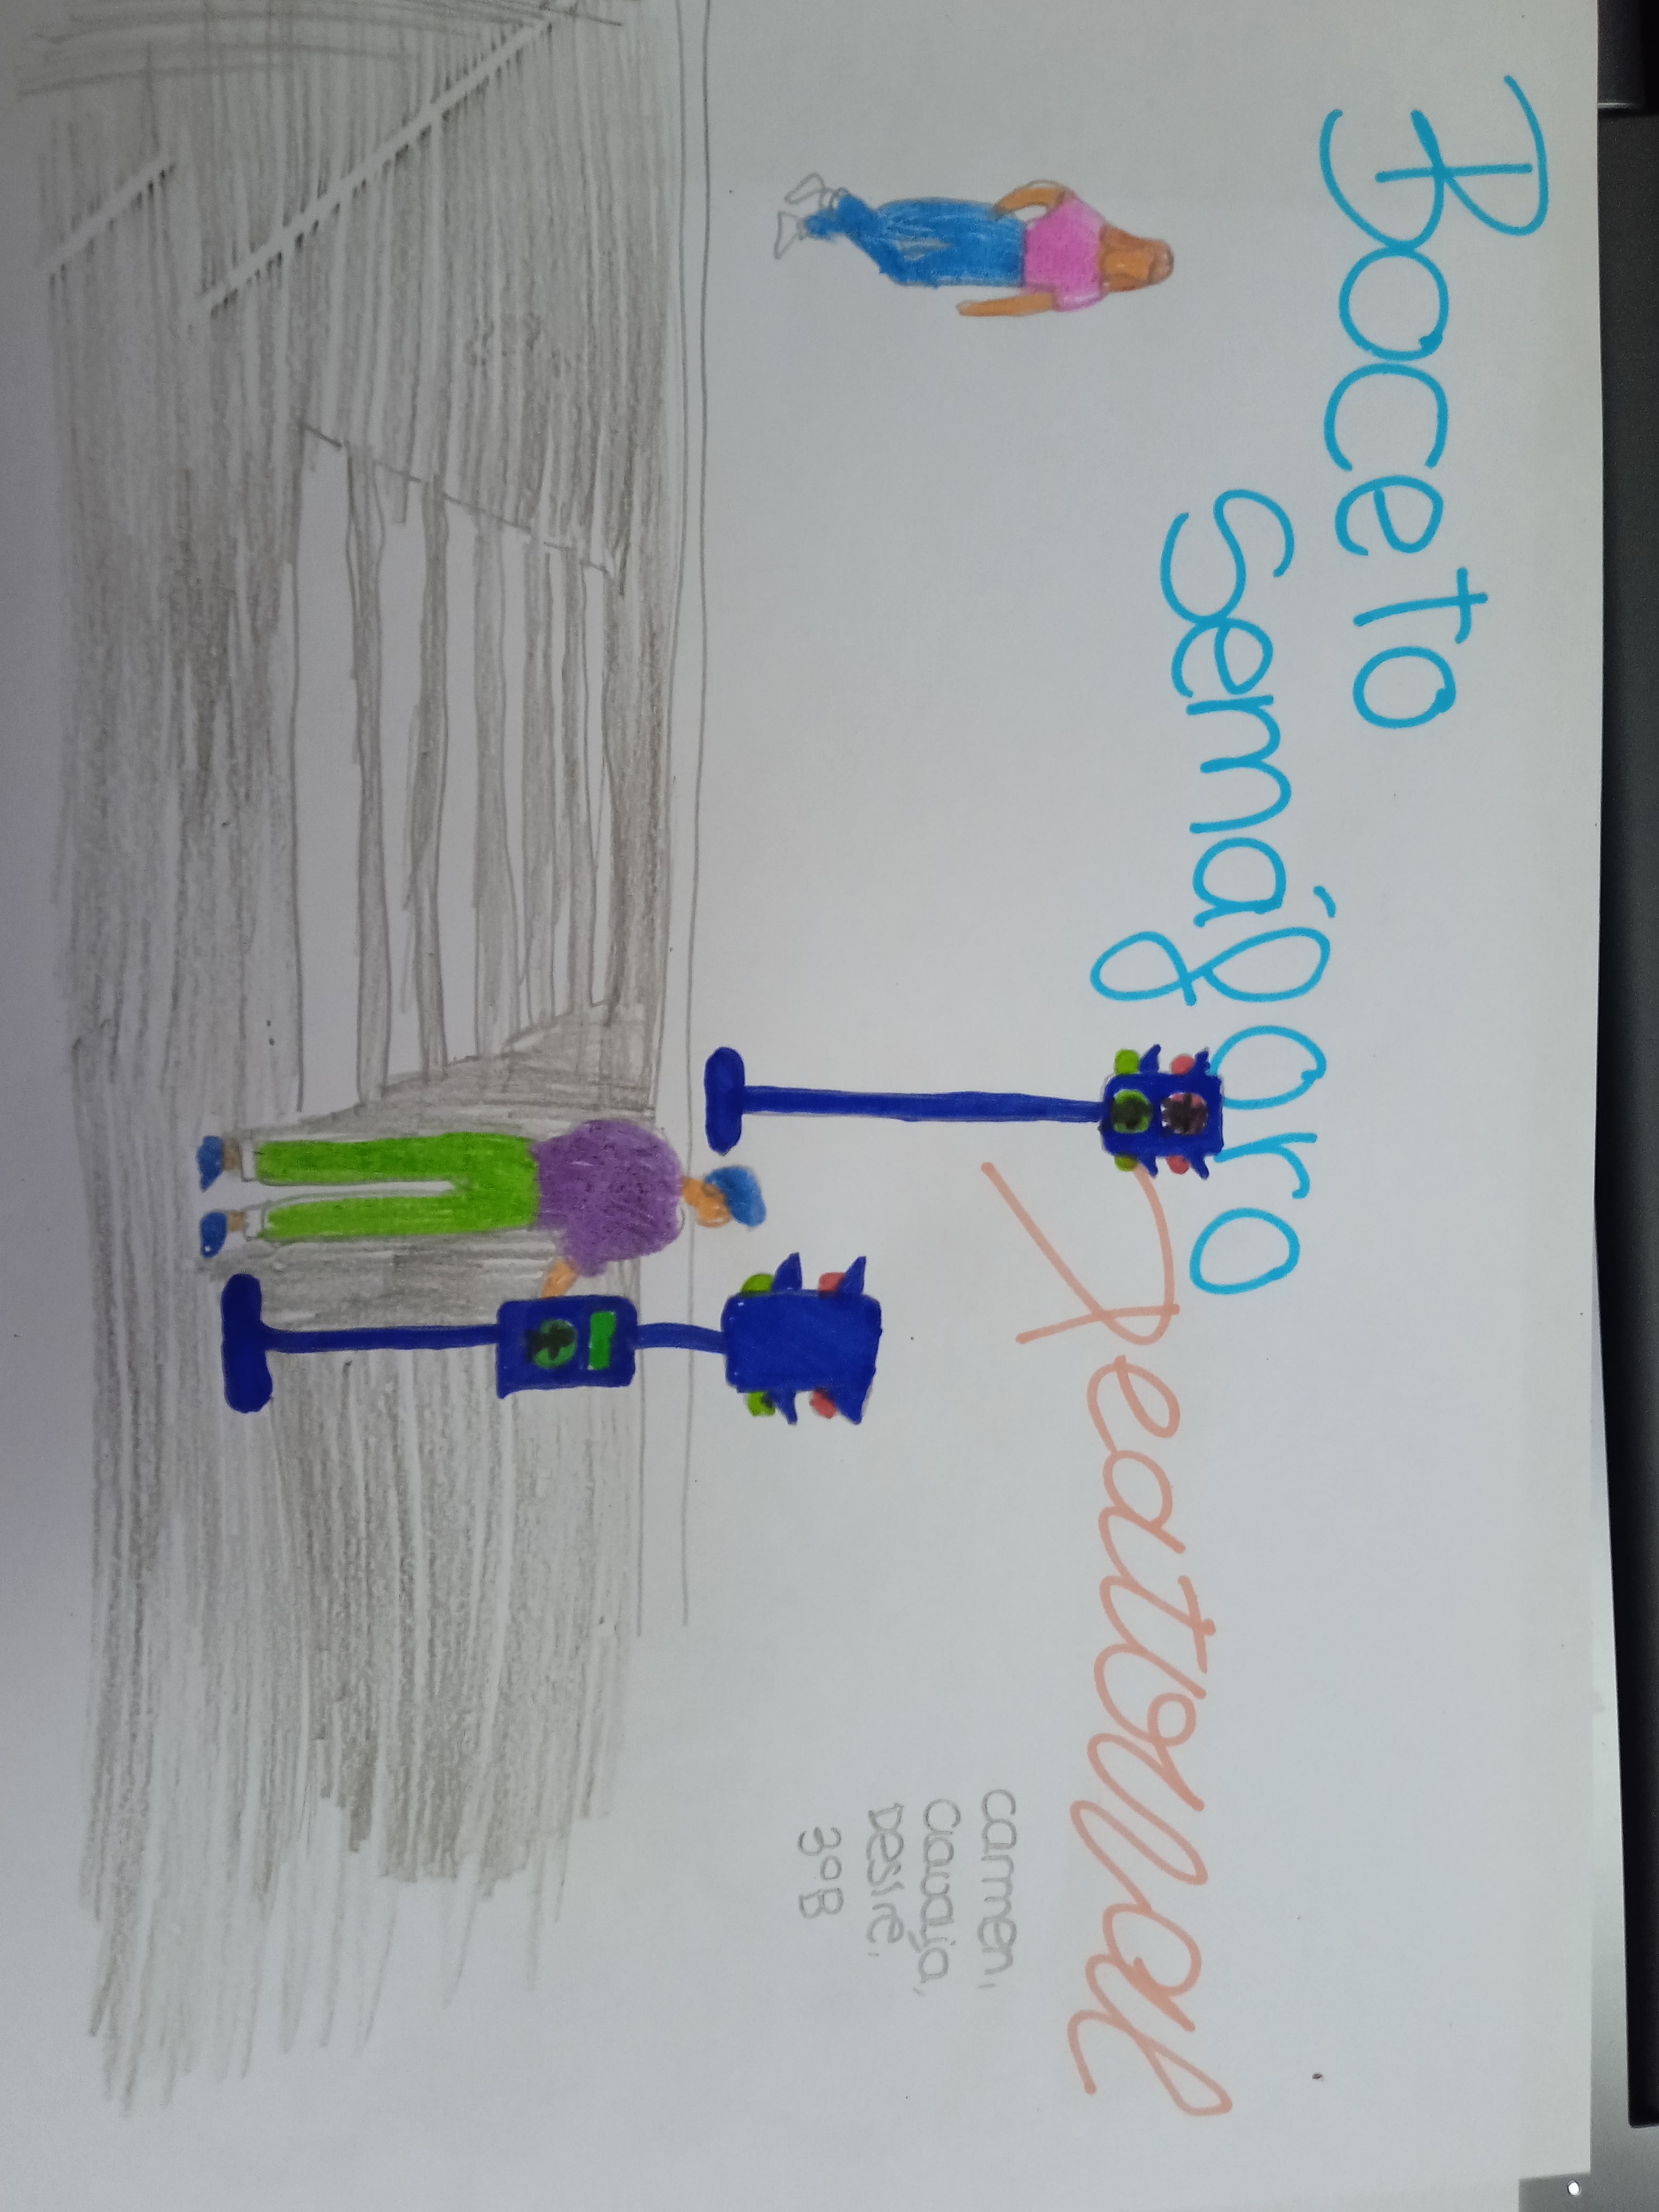 Boceto
Semáforo
Peatonal
carmen,
Dessiré,
3ºB